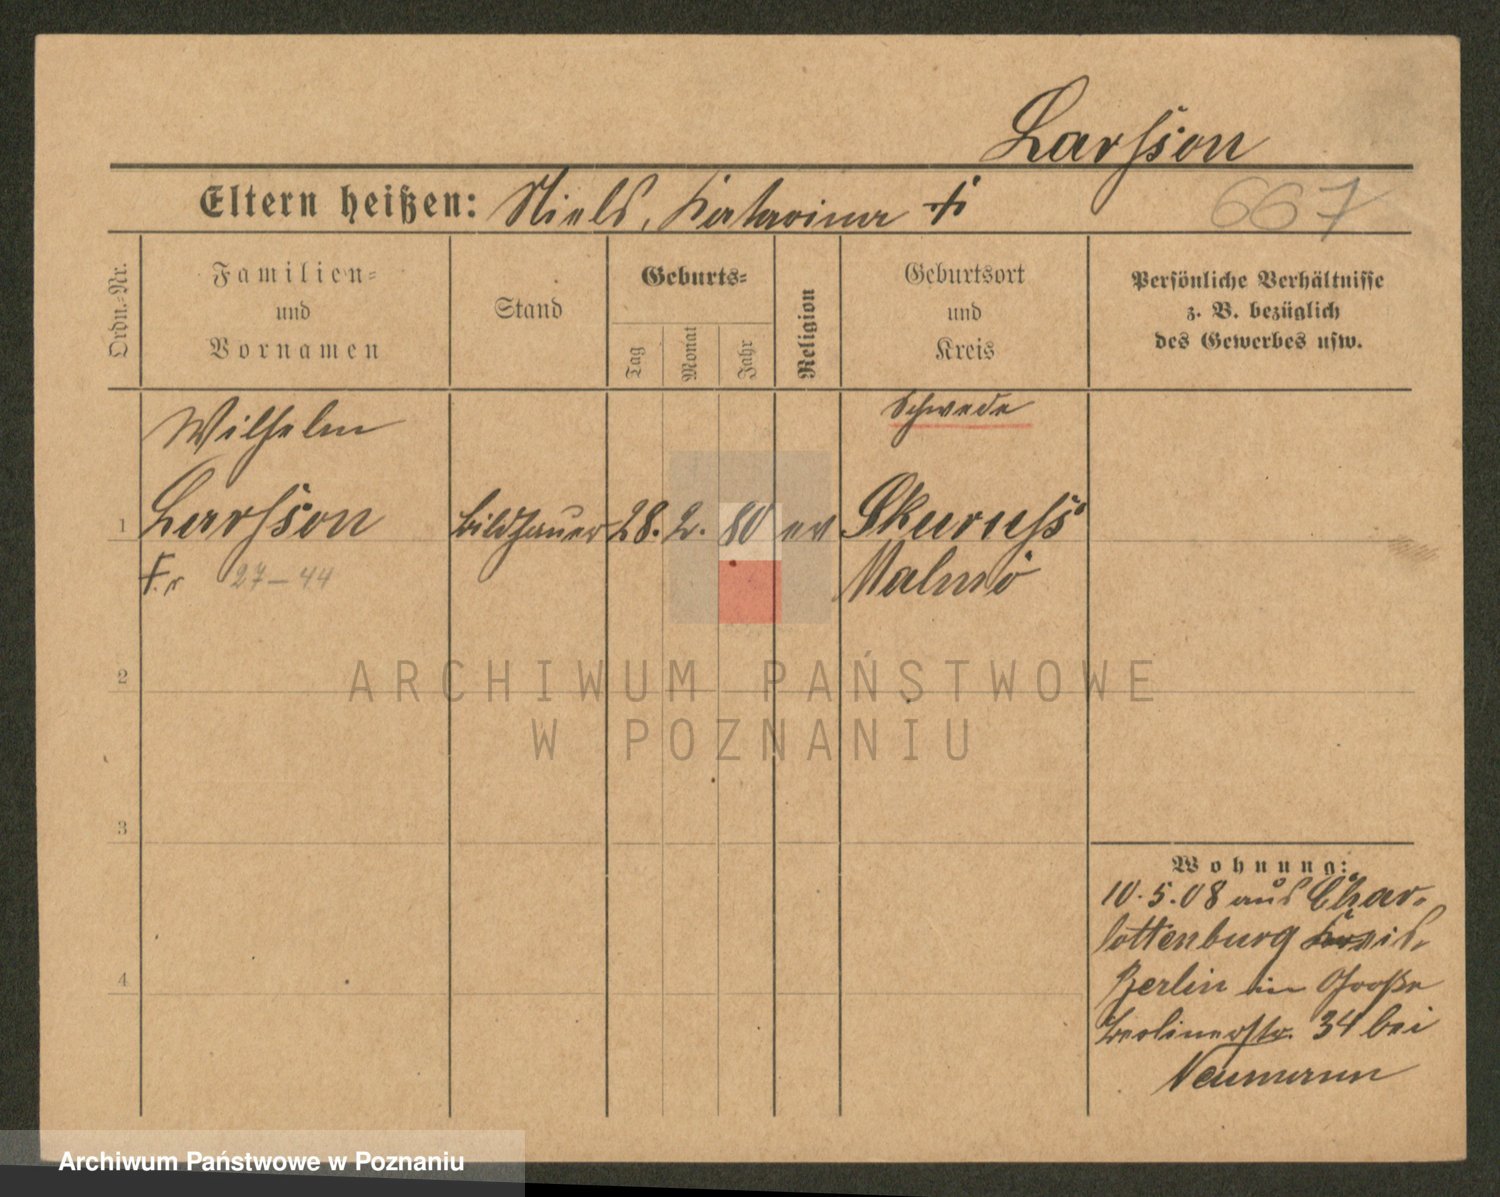 Larsson
Eltern heißen: Niels, Katarina †
667
Ordn.-Nr.
Familien-
und
Vornamen
Stand
Geburts-
Tag
Monat
Jahr
Religion
Geburtsort
und
Kreis
Persönliche Verhältnisse
z. B. bezüglich
des Gewerbes usw.
Wilhelm
Schwede
1 Larsson Bildhauer 28. 2. 80 ev Skurups
27-44 Malmö
2
ARCHIWUM PAŃSTWOWE
W POZNANIU
3
4
Wohnung:
10.5.08 aus Char-
lottenburg Kreis
Berlin in Große
Berlinerstr. 34 bei
Neumann
Archiwum Państwowe w Poznaniu